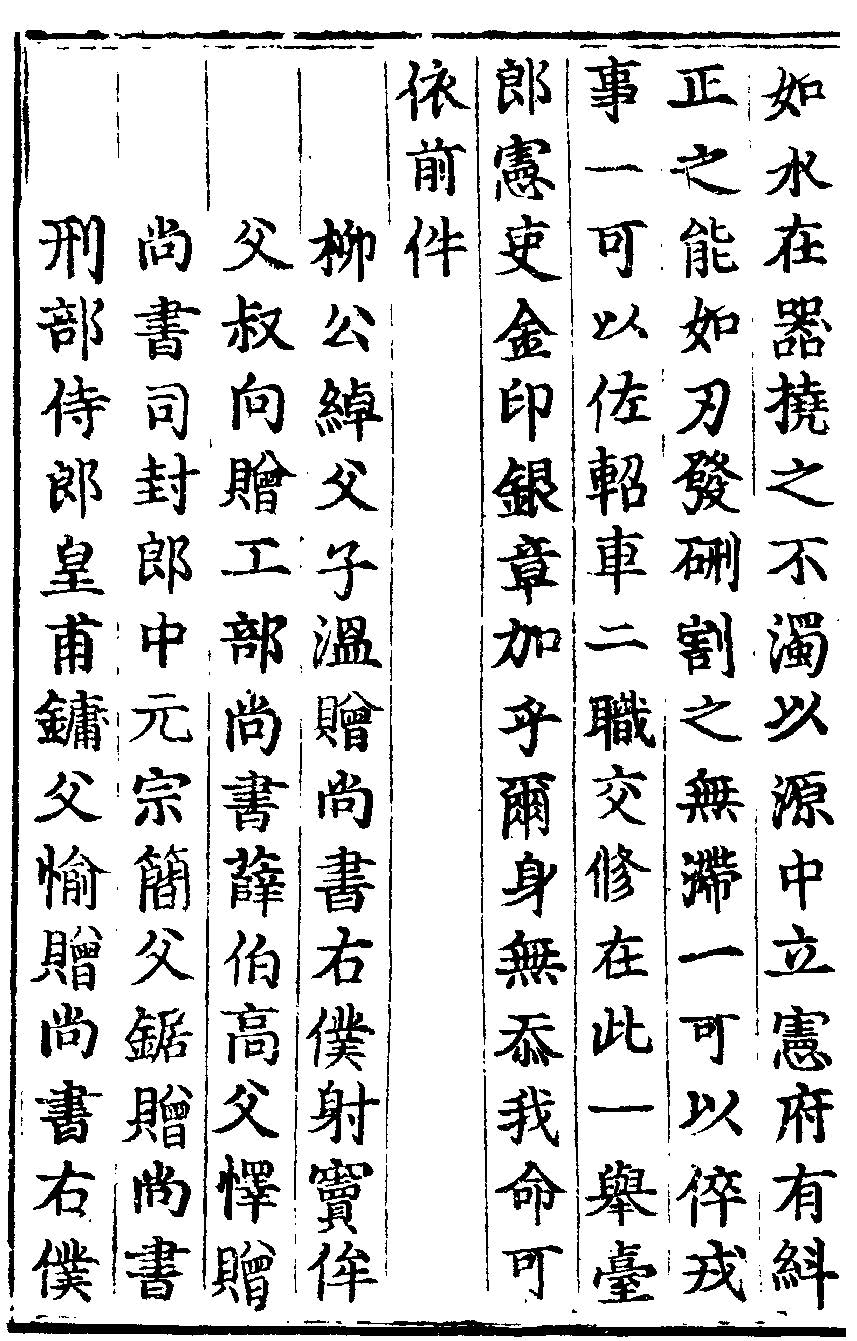 如水在器撓之不濁以源中立憲府有糾
正之能如刃發硎割之無滯一可以倅戎
事一可以佐軺車二職交修在此一舉臺
郎憲吏金印銀章加乎爾身無忝我命可
依前件
柳公綽父子溫贈尚書右僕射竇侔
父叔向贈工部尚書薛伯高父懌贈
尚書司封郎中元宗簡父鋸贈尚書
刑部侍郎皇甫鏞父愉贈尚書右僕